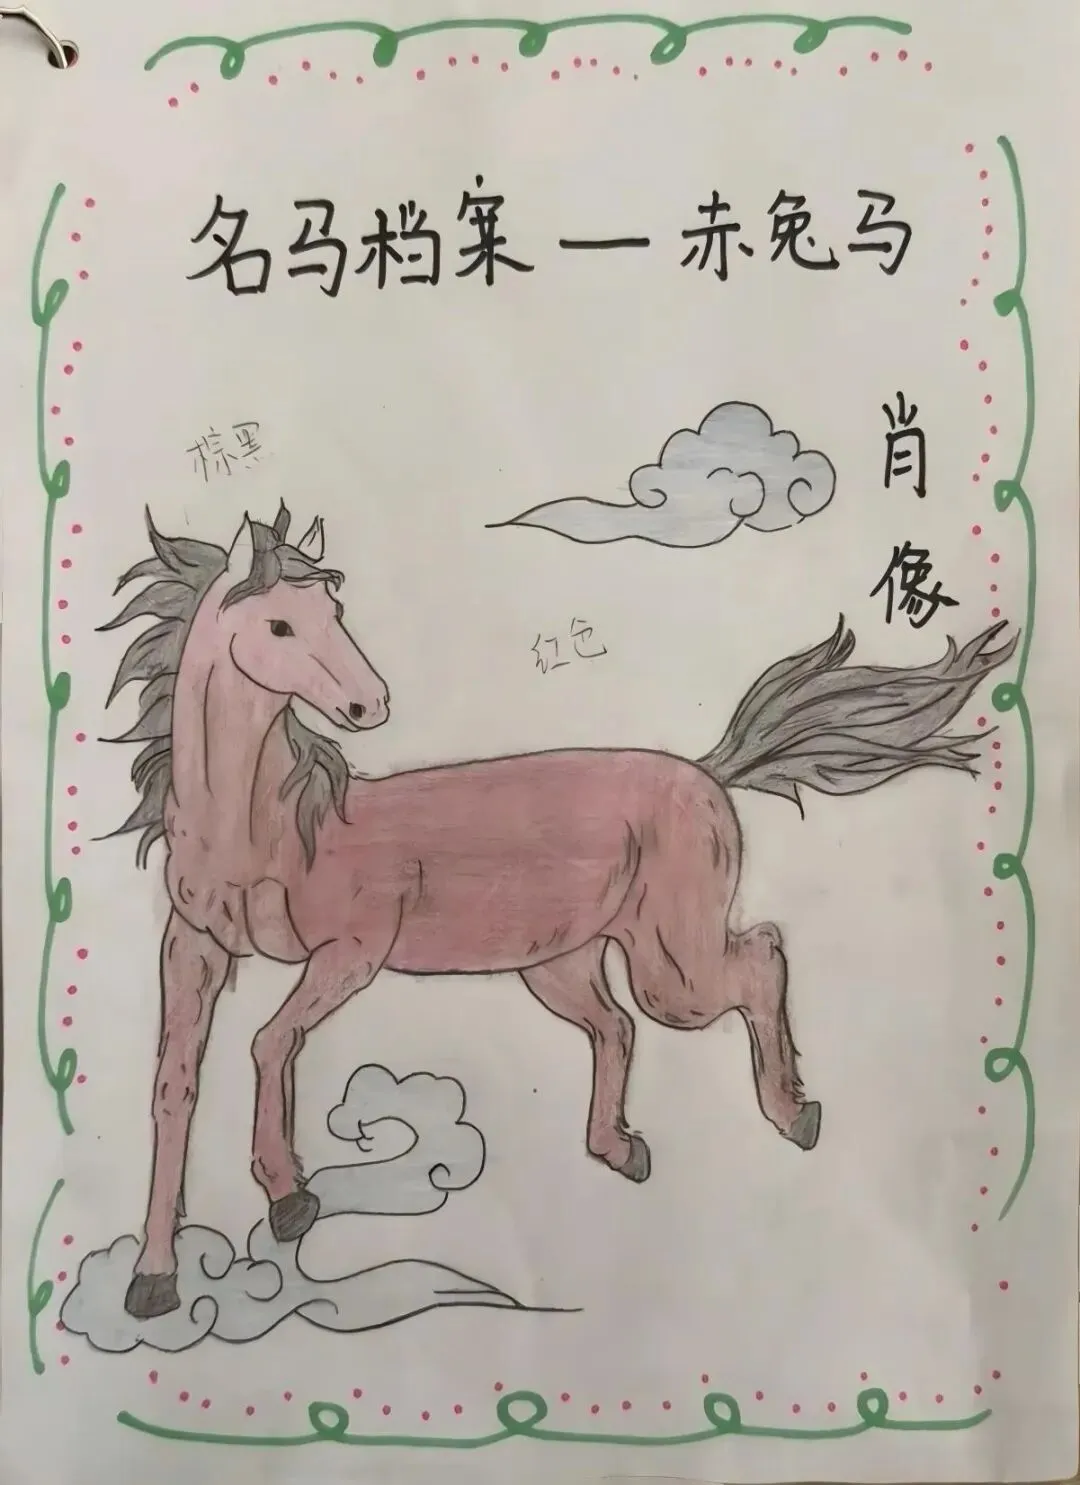 名马档案—赤兔马
肖
像
棕黑
红色